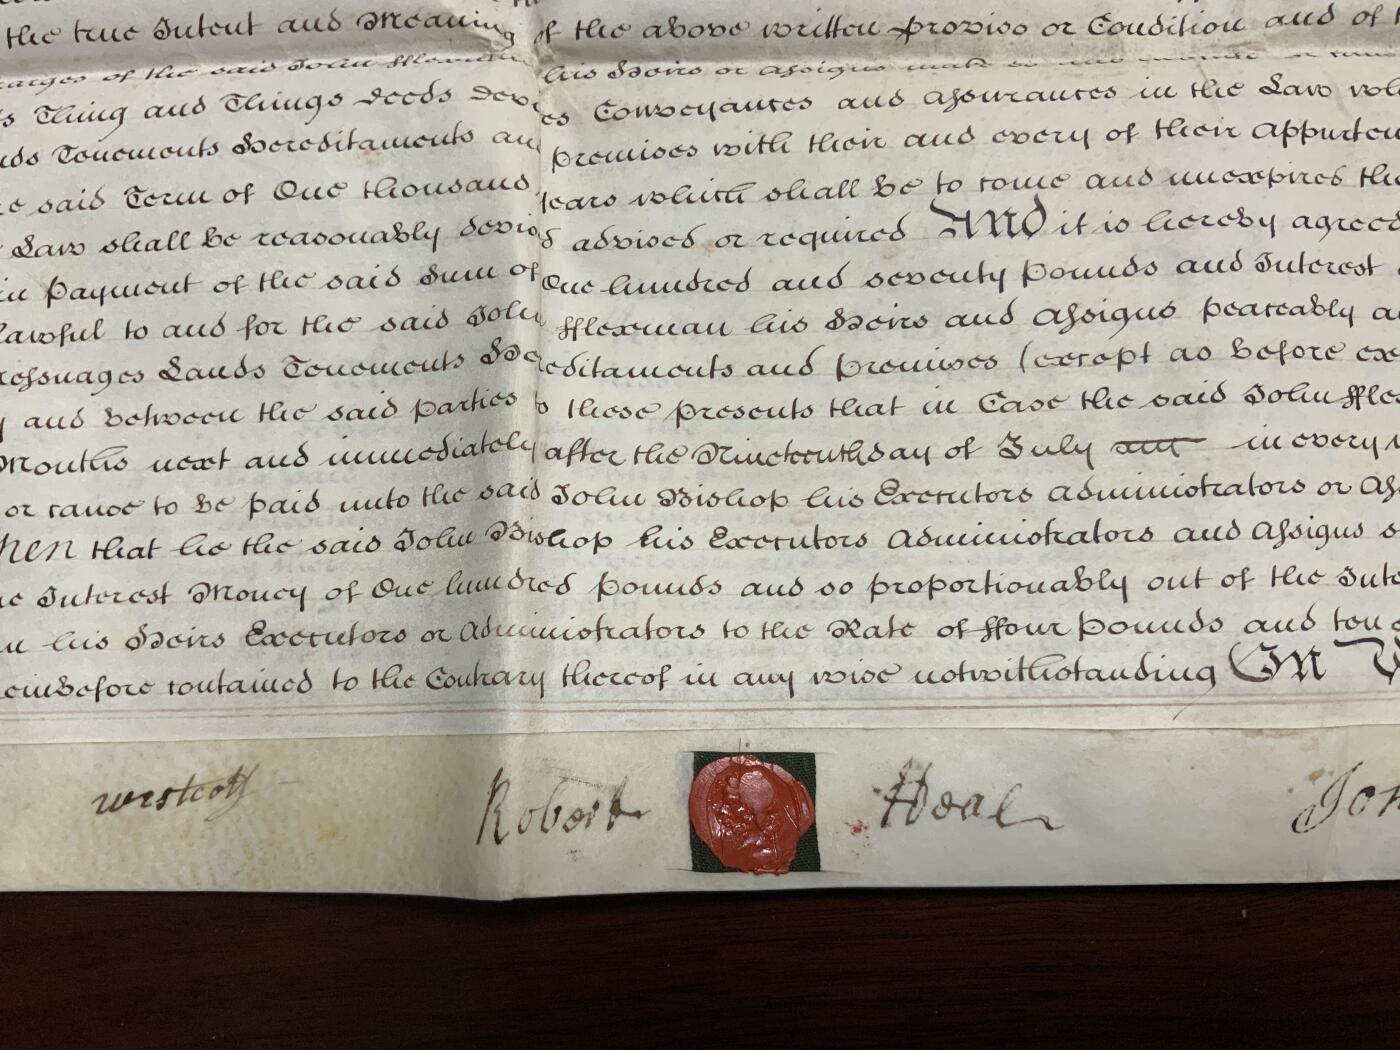 the true Intent and Meaning of the above written proviso or Condition and of
Charges of the said John Fflexman his Heirs or Assigns make do and
Thing and Things deeds devices Conveyances and Assurances in the Law
Tenements Hereditaments and premises with their and every of their Appurten
said Term of One thousand Years which shall be to come and unexpired
Law shall be reasonably devised advised or required And it is hereby agreed
in Payment of the said Sum of One hundred and seventy pounds and Interest
lawful to and for the said John Fflexman his Heirs and Assigns peaceably
Messuages Lands Tenements Hereditaments and premises (except as before
and between the said parties to these presents that in Case the said John Ffle
Months next and immediately after the Nineteenth day of July in every
or cause to be paid unto the said John Bishop his Executors Administrators or
then that he the said John Bishop his Executors Administrators and Assigns
Interest Money of One hundred pounds and so proportionably out of the Inte
his Heirs Executors or Administrators to the Rate of Ffour pounds and ten
einbefore contained to the Contrary thereof in any wise notwithstanding In
westcott Robert Heal Joh